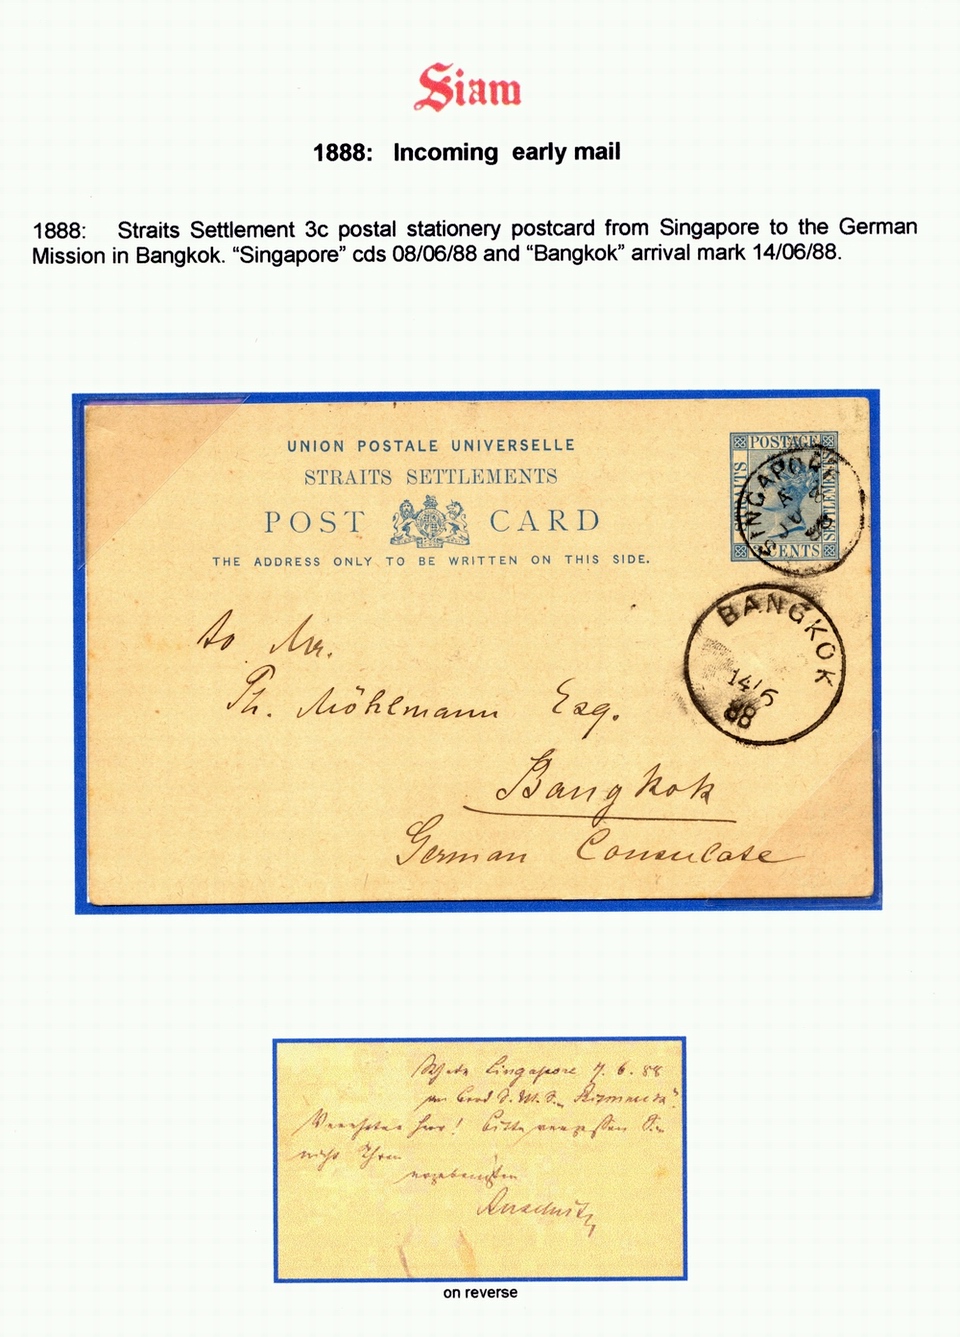 Siam
1888: Incoming early mail
1888: Straits Settlement 3c postal stationery postcard from Singapore to the German
Mission in Bangkok. “Singapore” cds 08/06/88 and “Bangkok” arrival mark 14/06/88.
UNION POSTALE UNIVERSELLE
STRAITS SETTLEMENTS
POST CARD
THE ADDRESS ONLY TO BE WRITTEN ON THIS SIDE.
POSTAGE
STRAITS
SETTLEMENTS
CENTS
SINGAPORE
A
8
88
BANGKOK
14/6
88
to Mr.
Th. Möhlmann Esq.
Bangkok
German Consulate
Singapore 7. 6. 88
an Bord S.M.S.
Verehrter Herr! Bitte vergessen Sie
nicht Ihren
ergebensten
on reverse